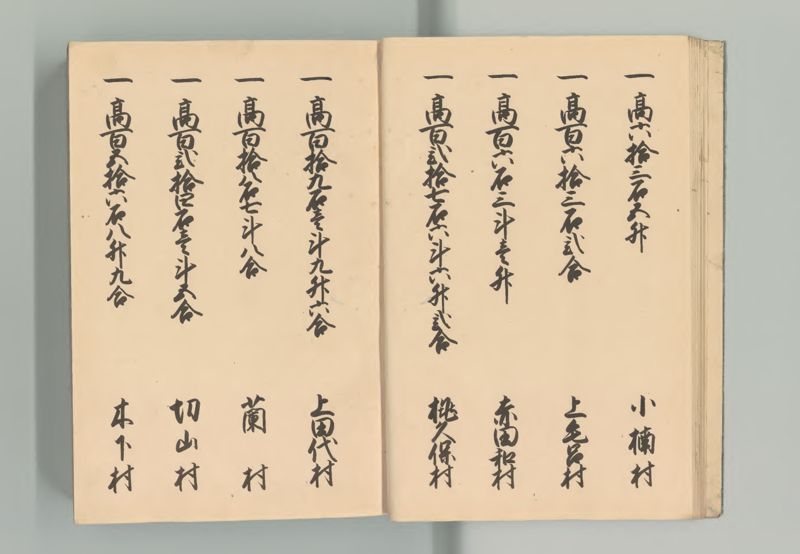 一 高六拾三石五升 小楠村
一 高百六拾三石弐合 上毛呂村
一 高百六石三斗壱升 赤田和村
一 高百弐拾七石六斗六升弐合 桃久保村
一 高百拾九石壱斗九升六合 上田代村
一 高百拾八石七斗八合 蘭村
一 高百弐拾四石壱斗五合 切山村
一 高百五拾六石八升九合 木下村